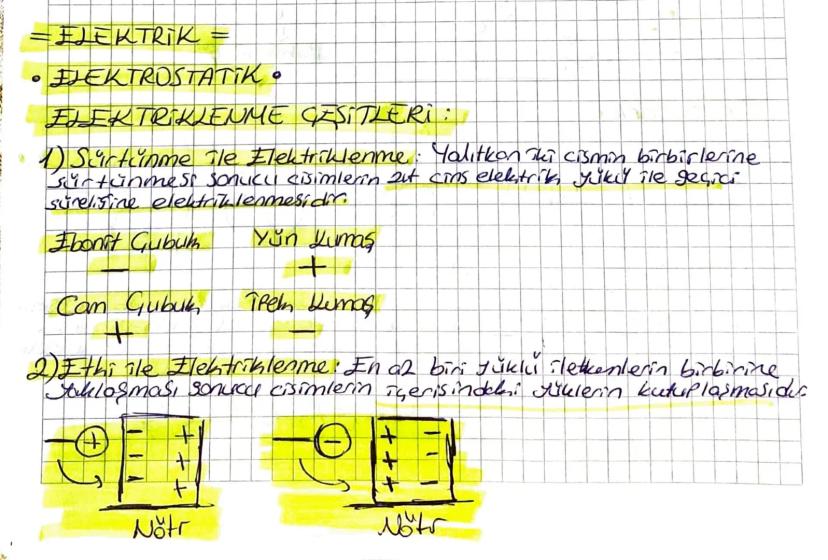 = ELEKTRİK =
• ELEKTROSTATİK •
ELEKTRİKLENME ÇEŞİTLERİ :
1) Sürtünme ile Elektriklenme: Yalıtkan iki cismin birbirlerine
sürtünmesi sonucu cisimlerin zıt cins elektrik yükü ile geçici
süreliğine elektriklenmesidir.
Ebonit Çubuk Yün Kumaş
- +
Cam Çubuk İpek Kumaş
+ -
2) Etki ile Elektriklenme: En az biri yüklü iletkenlerin birbirine
yaklaşması sonucu cisimlerin içerisindeki yüklerin kutuplaşmasıdır.
+ - + - + -
- + + -
- + + -
Nötr Nötr